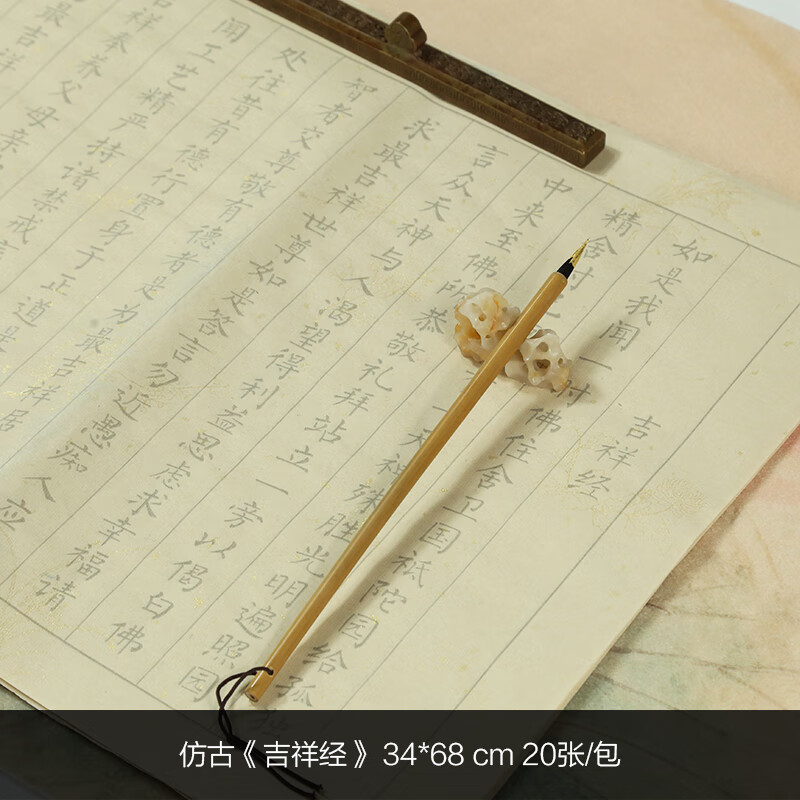 吉祥经
如是我闻一时佛住舍卫国祇陀园给孤
精舍时一天神殊胜光明遍照园
中来至佛所恭敬礼拜站立一旁以偈白佛
言众天神与人渴望得利益思虑求幸福请
求最吉祥世尊如是答言勿近愚痴人应
智者交尊敬有德者是为最吉祥居
处往昔有德行置身于正道是
闻工艺精严持诸禁戒言
祥奉养父母亲
最吉祥
仿古《吉祥经》34*68 cm 20张/包